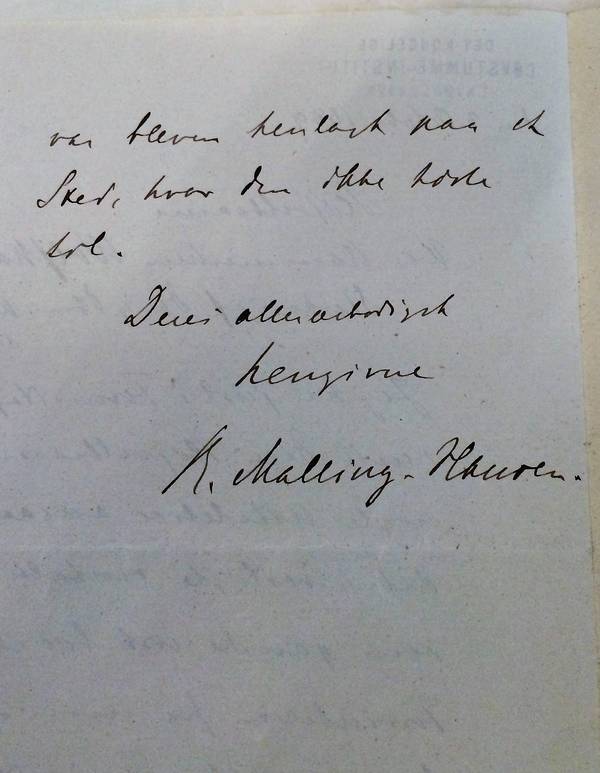 var bleven henlagt paa et
Sted, hvor den ikke hørte
til.
Deres allerærbødigst
hengivne
R. Malling-Hansen.